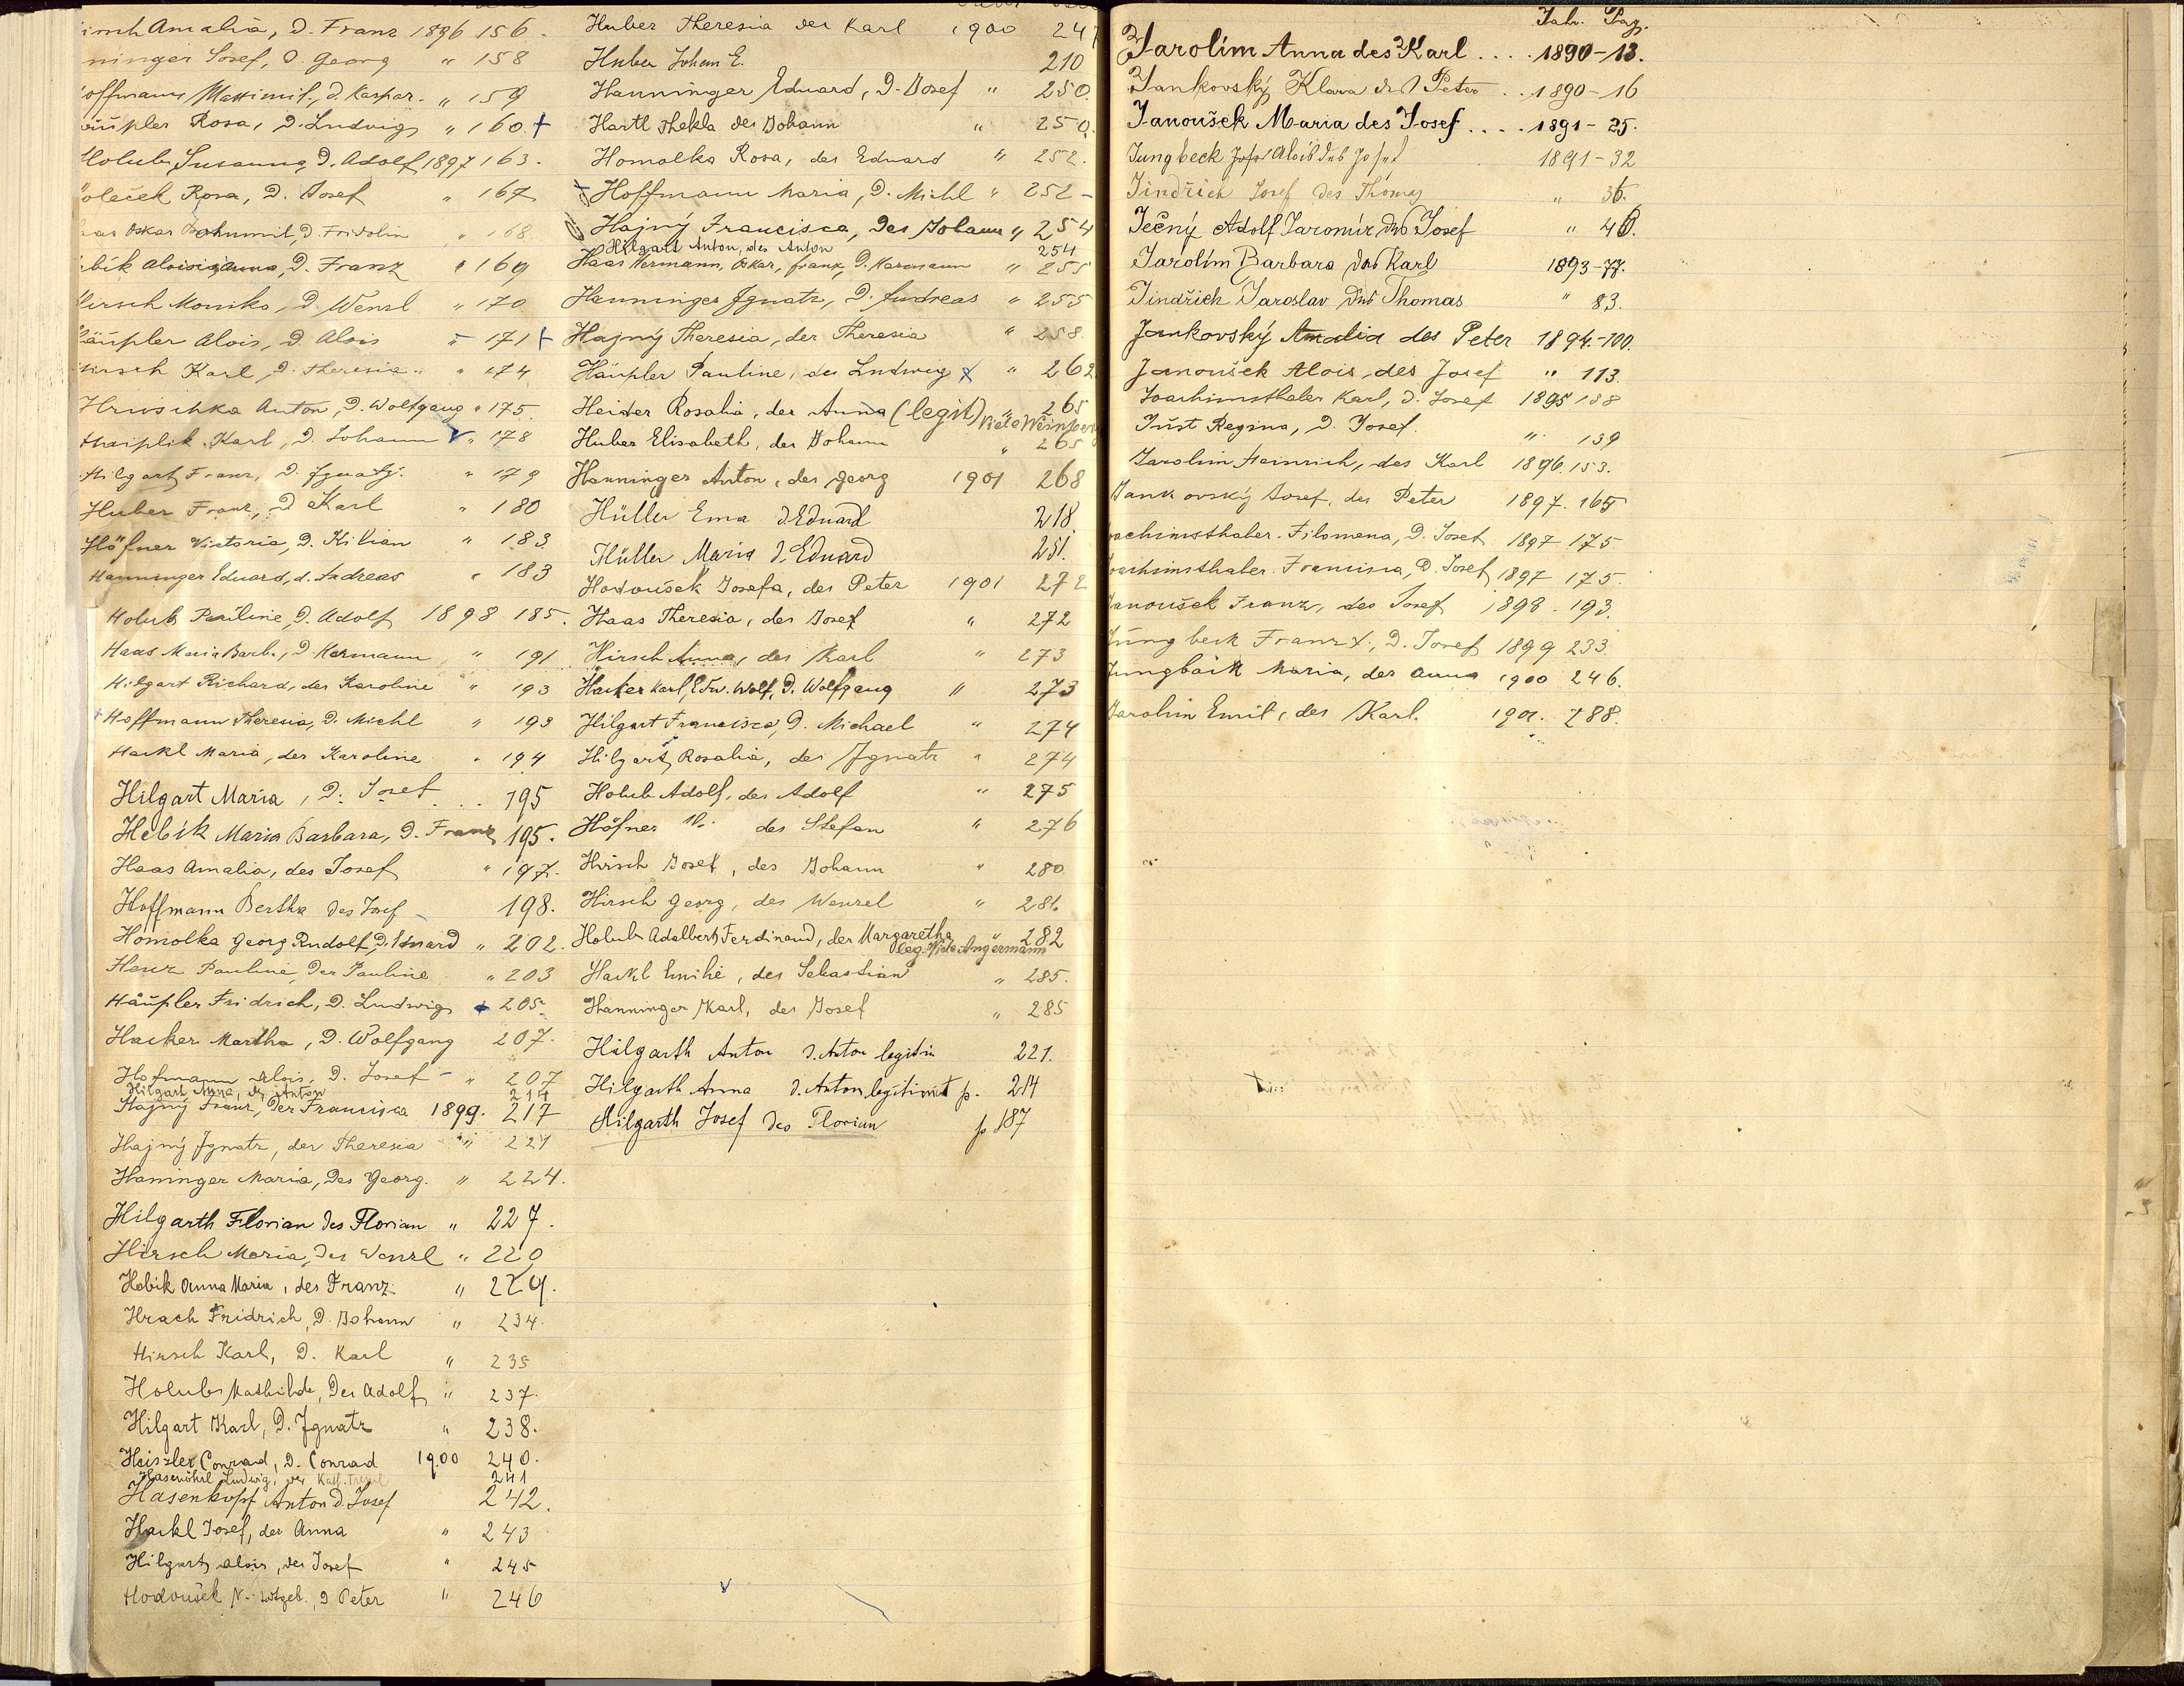 irsch Amalia, D. Franz 1896 156.
ninger Josef, D. Georg " 158
offmann Maximil., d. Kaspar. " 159
äupler Rosa, D. Ludwig " 160 +
Holub Susanna, D. Adolf 1897 163.
oleček Rosa, D. Josef " 167
aas Oskar Bohumil, D. Fridolin " 168
bik Aloisia Anna, D. Franz " 169
Hirsch Monika, D. Wenzl " 170
Häupler Alois, D. Alois - 171 +
Hirsch Karl, D. Theresia " 174
Hruschka Anton, D. Wolfgang " 175.
Haiplik Karl, D. Johann " 178
Hilgart Franz, D. Ignatz. " 179
Huber Franz, D Karl " 180
Höfner Victoria, D. Kilian " 183
Hanninger Eduard, d. Andreas " 183
Holub Pauline, D. Adolf 1898 185.
Haas Maria Barb., D. Hermann " 191
Hilgart Richard, der Karoline " 193
+ Hoffmann Theresia, D. Michl " 193
Hackl Maria, der Karoline " 194
Hilgart Maria, D. Josef . . 195
Hebík Maria Barbara, D. Franz 195.
Haas Amalia, des Josef " 197.
Hoffmann Bertha des Josef - 198.
Homolka Georg Rudolf, D. Eduard " 202.
Herz Pauline, Der Pauline " 203
Häupler Fridrich, D. Ludwig + 205.
Hacker Martha, D. Wolfgang 207.
Hofmann Alois, D. Josef - " 207
Hilgart Anna, d. Anton 214
Hajný Franz, Der Francisca 1899. 217
Hajný Ignatz, der Theresia " 221
Haninger Maria, Des Georg. " 224.
Hilgarth Florian des Florian " 227.
Hirsch Maria, Des Wenzl " 220
Hobik Anna Maria, des Franz " 229.
Hrach Fridrich, D. Johann " 234.
Hirsch Karl, D. Karl " 235
Holub Mathilde, Des Adolf " 237.
Hilgart Karl, D. Ignatz " 238.
Heiszler Conrad, D. Conrad 1900 240.
Hasenöhrl Ludwig, der Kath. 241
Hasenkopf Anton d. Josef 242.
Hackl Josef, der Anna " 243
Hilgart Alois, des Josef " 245
Hodoušek N. - totgeb., D Peter " 246
Huber Theresia des Karl 1900 247
Huber Johann E. 210
Hanninger Eduard, D. Josef " 250.
Hartl Thekla des Johann " 250.
Homolka Rosa, des Eduard " 252.
+ Hoffmann Maria, D. Michl " 252 -
Hajný Francisca, Des Johann " 254
Hilgart Anton, des Anton 254
Haas Hermann, Oskar, Franz, D. Hermann " 255
Hanninger Ignatz, D. Andreas " 255
Hajný Theresia, der Theresia " 258.
Häupler Pauline, des Ludwig x " 262
Heider Rosalia, der Anna (legit) " 265
Huber Elisabeth, des Johann " 265
Hanninger Anton, des Georg 1901 268
Hüller Ema d. Eduard 218.
Hüller Maria d. Eduard 251.
Hodoušek Josefa, des Peter 1901 272
Haas Theresia, des Josef " 272
Hirsch Anna, des Karl " 273
Hacker Karl, Edu. Wolf, D. Wolfgang " 273
Hilgart Francisca, D. Michael " 274
Hilgart Rosalia, des Ignatz " 274
Holub Adolf, des Adolf " 275
Höfner N. des Stefan " 276
Hirsch Josef, des Johann " 280
Hirsch Georg, des Wenzel " 281.
Holub Adalbert Ferdinand, der Margaretha " 282
leg. Vide Angermann
Hackl Emilie, des Sebastian " 285.
Hanninger Karl, des Josef " 285
Hilgarth Anton d. Anton legitim 221.
Hilgarth Anna d. Anton legitimiert p. 214
Hilgarth Josef des Florian p 187
Jahr. Pag.
Jarolím Anna des Karl .... 1890-13.
Jankovský Klara des Peter .. 1890-16
Janoušek Maria des Josef .... 1891-25.
Jungbeck Josef Alois des Josef 1891-32
Jindřich Josef des Thomas " 36.
Ječný Adolf Jaromír des Josef " 40.
Jarolím Barbara des Karl 1893-77.
Jindřich Jaroslav des Thomas " 83.
Jankovský Amalia des Peter 1894.-100.
Janoušek Alois des Josef " 113.
Joachimsthaler Karl, d. Josef 1895 138
Just Regina, D. Josef. " 139
Jarolim Heinrich, des Karl 1896. 153.
Jankovský Josef, des Peter 1897. 165
oachimsthaler Filomena, D. Josef 1897 175
oachimsthaler Francisca, D. Josef 1897 175.
Janoušek Franz, des Josef 1898. 193.
Jungbeck Franz X., D. Josef 1899 233
Jungbaik Maria, der Anna 1900 246.
Jarolim Emil, des Karl. 1901. 288.